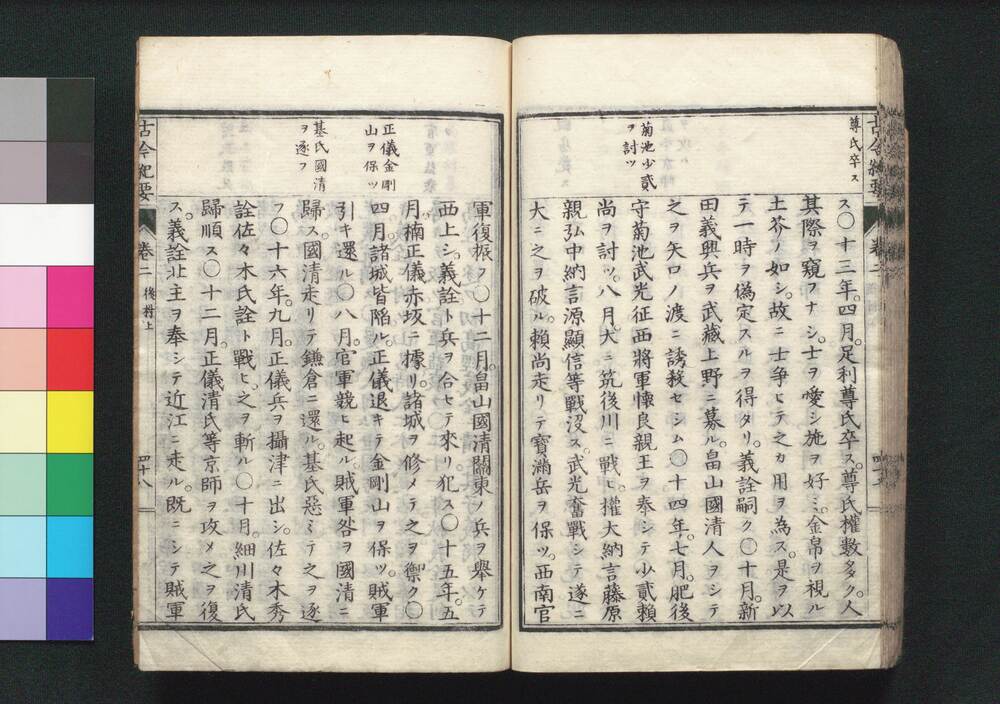 尊氏卒ス
菊池少貳
ヲ討ツ
ス○十三年。四月。足利尊氏卒ス。尊氏權數多ク。人
其際ヲ窺フナシ。士ヲ愛シ施ヲ好ミ。金帛ヲ視ル
土芥ノ如シ。故ニ士争ヒテ之カ用ヲ為ス。是ヲ以
テ一時ヲ偽定スルヲ得タリ。義詮嗣ク○十月。新
田義興兵ヲ武藏上野ニ募ル。畠山國清人ヲシテ
之ヲ矢口ノ渡ニ誘殺セシム○十四年。七月。肥後
守菊池武光征西將軍懐良親王ヲ奉シテ少貳賴
尚ヲ討ツ。八月。大ニ筑後川ニ戰ヒ。權大納言藤原
親弘中納言源顯信等戰没ス。武光奮戰シテ遂ニ
大ニ之ヲ破ル。賴尚走リテ寶滿岳ヲ保ツ。西南官
古今紀要
卷二
正儀金剛
山ヲ保ツ
基氏國清
ヲ逐フ
軍復振フ○十二月。畠山國清關東ノ兵ヲ舉ケテ
西上シ。義詮ト兵ヲ合セテ來リ犯ス○十五年。五
月。楠正儀赤坂ニ據リ。諸城ヲ修メテ之ヲ禦ク○
四月諸城皆陥ル。正儀退キテ金剛山ヲ保ツ。賊軍
引キ還ル○八月。官軍競ヒ起ル。賊軍咎ヲ國清ニ
歸ス。國清走リテ鎌倉ニ還ル。基氏惡ミテ之ヲ逐
フ○十六年。九月。正儀兵ヲ攝津ニ出シ。佐々木秀
詮佐々木氏詮ト戰ヒ。之ヲ斬ル○十月。細川清氏
歸順ス○十二月。正儀清氏等京師ヲ攻メ之ヲ復
ス。義詮北主ヲ奉シテ近江ニ走ル。既ニシテ賊軍
古今紀要
卷二
後村上
四十八